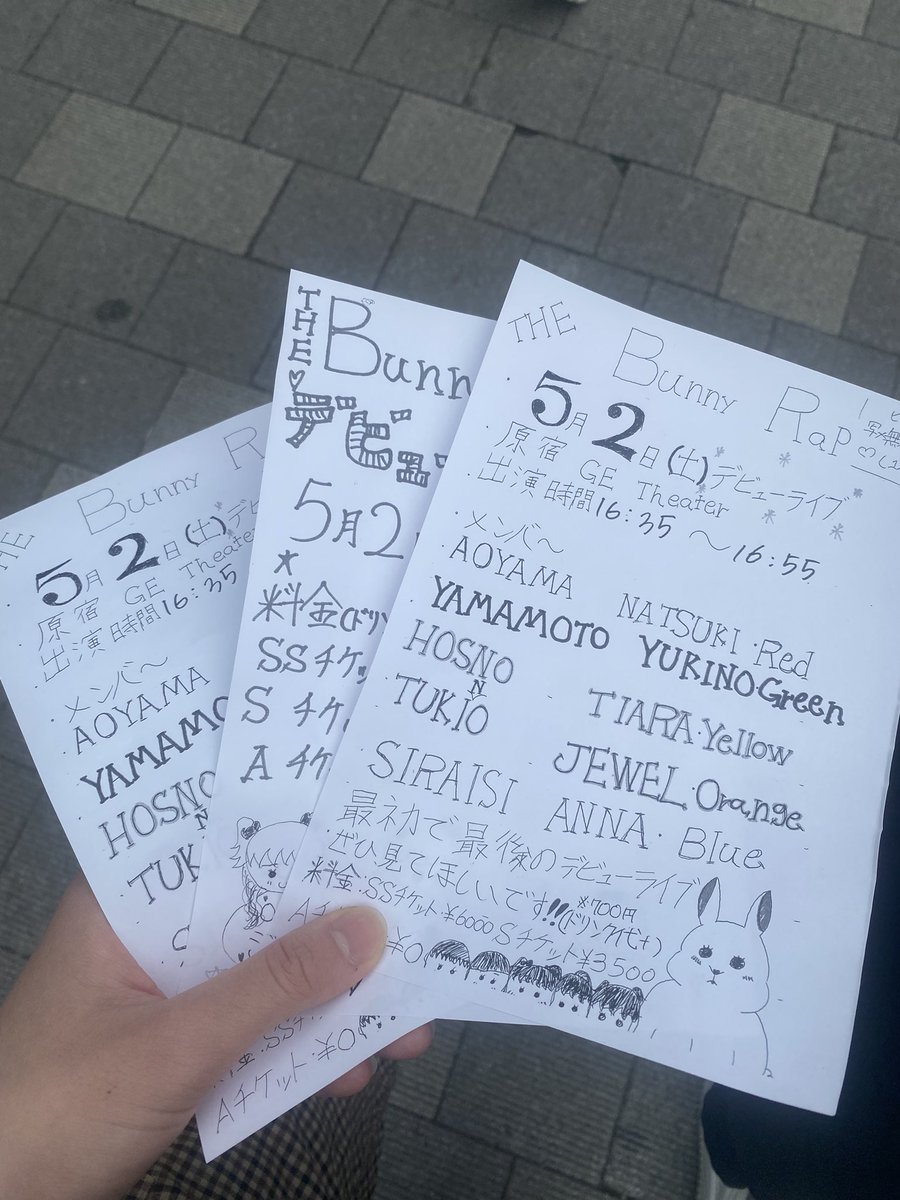 THE Bunny Rap
5月2日(土)デビューライブ
原宿 GE Theater
出演時間16:35〜16:55
メンバ〜
AOYAMA NATSUKI・Red
YAMAMOTO YUKINO Green
HOSNO TIARA・Yellow
N
TUKIO JEWEL・Orange
SIRAISI ANNA・Blue
最初で最後のデビューライブ
ぜひ見てほしいです!!
※700円
(ドリンク代+)
料金・SSチケット・¥6000 Sチケット¥3500
¥0
THE♡
Bunn
デビュ
5月2
★
料金(ドリン
SSチケ
S チケ
A チケ
THE Bunny R
5月2日(土)デビ
原宿 GE Theater
出演時間16:35
メンバ〜
AOYAMA
YAMAMO
HOSNO
N
TUK
SSチケ
Aチケット:¥0